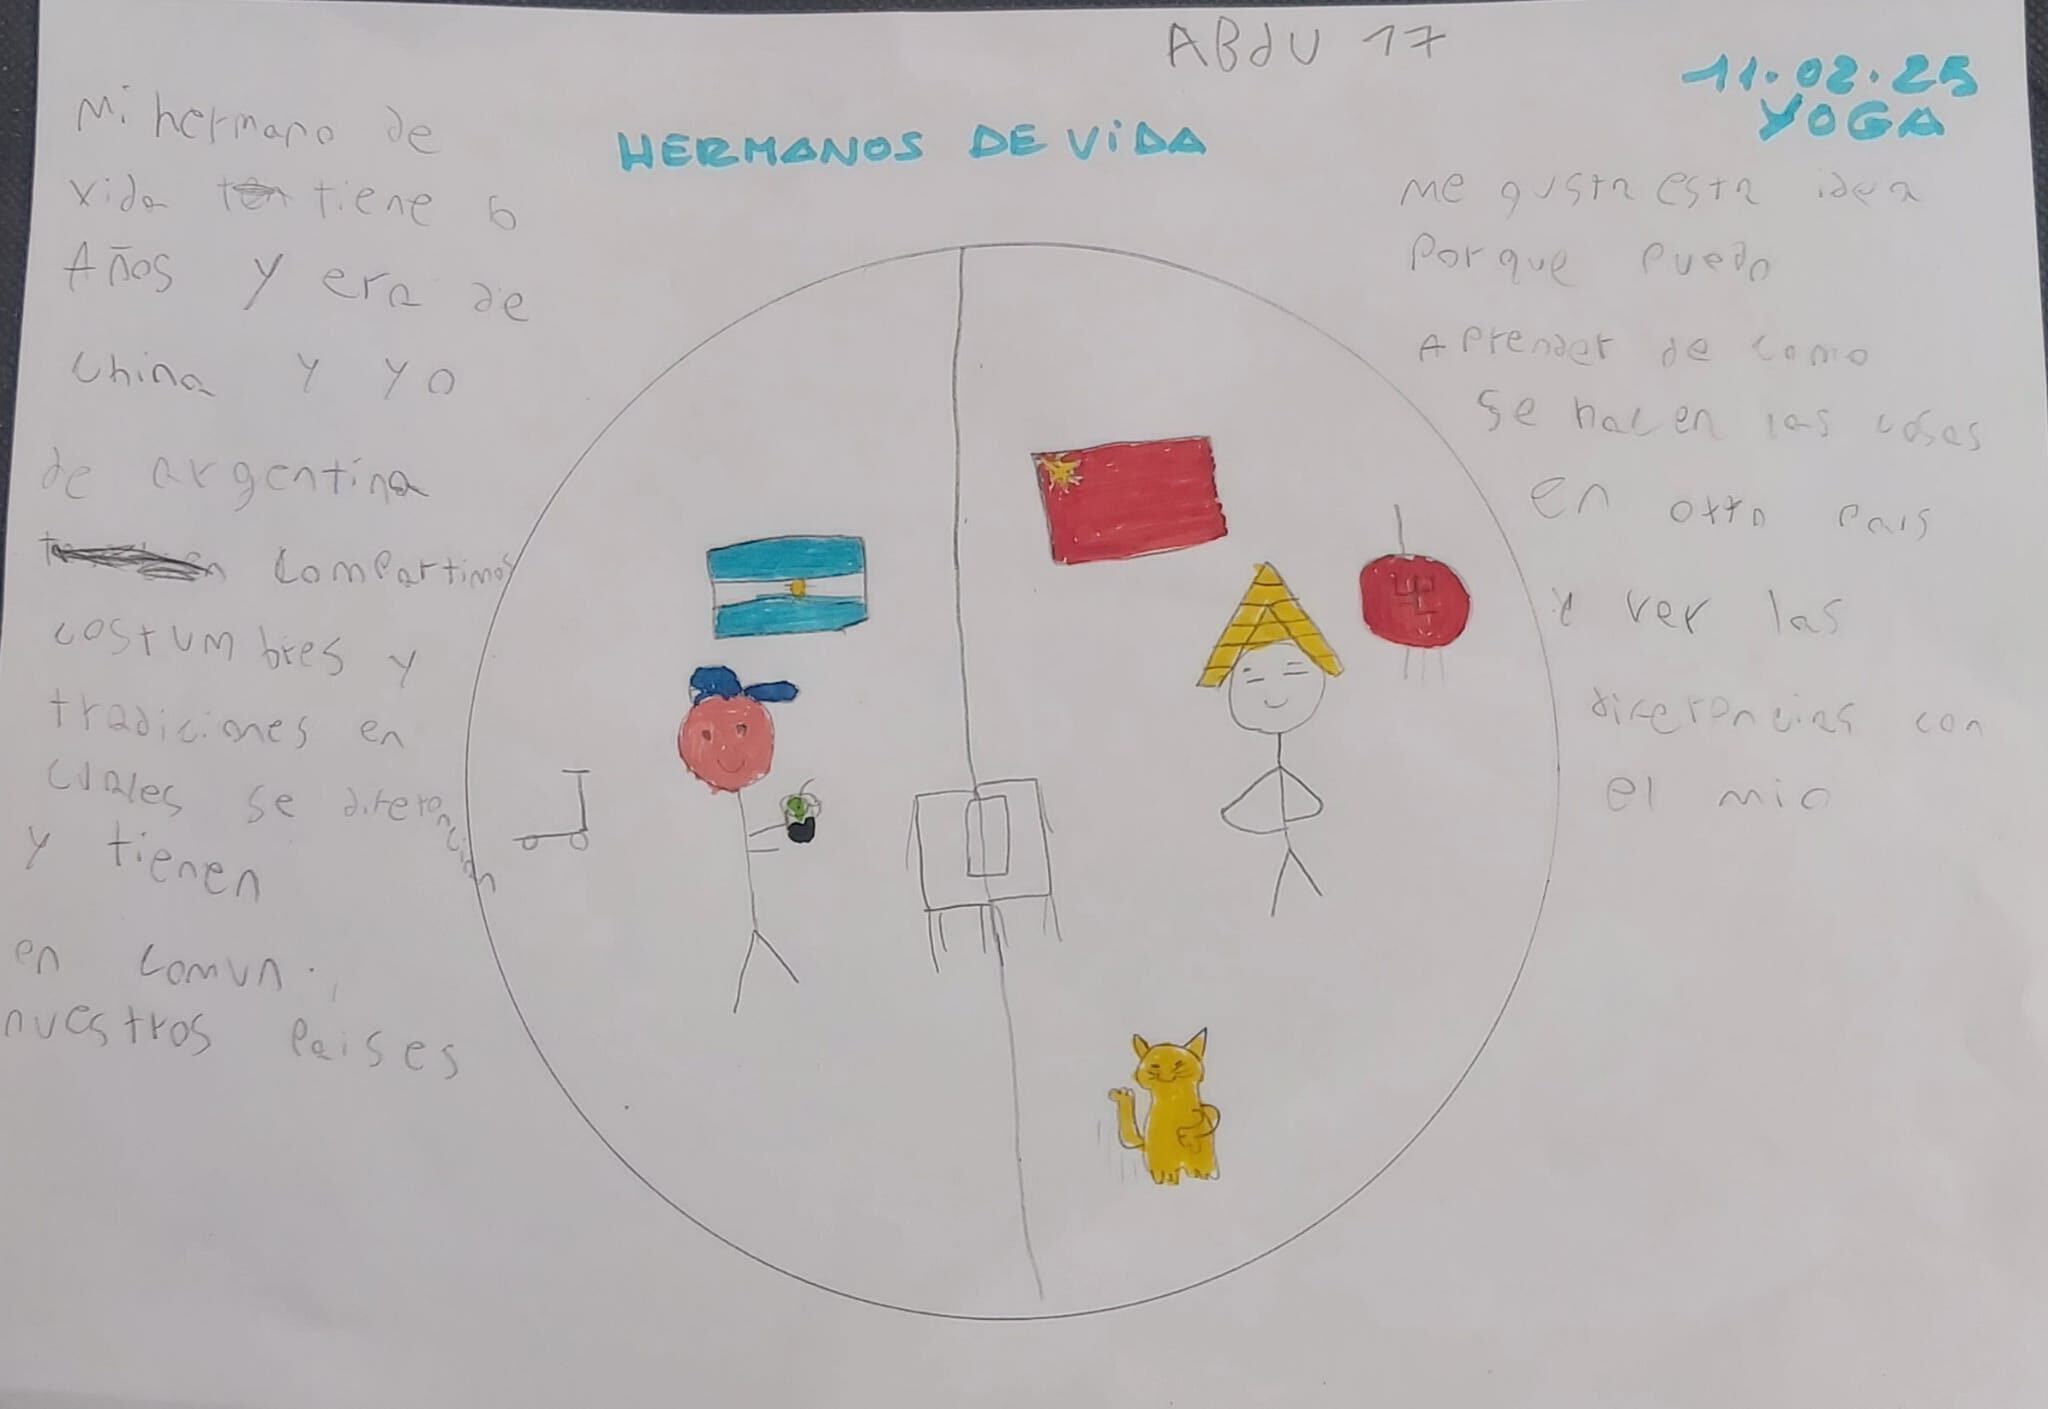 ABdU 17
11.02.25
YOGA
HERMANOS DE ViDA
Mi hermano de
vida tiene 6
Años y era de
China y yo
de argentina
compartimos
costumbres y
tradiciones en
cuales se diferencian
y tienen
en comun
nuestros paises
Me gusta esta idea
Porque puedo
Aprender de como
se hacen las cosas
en otro pais
y ver las
diferencias con
el mio